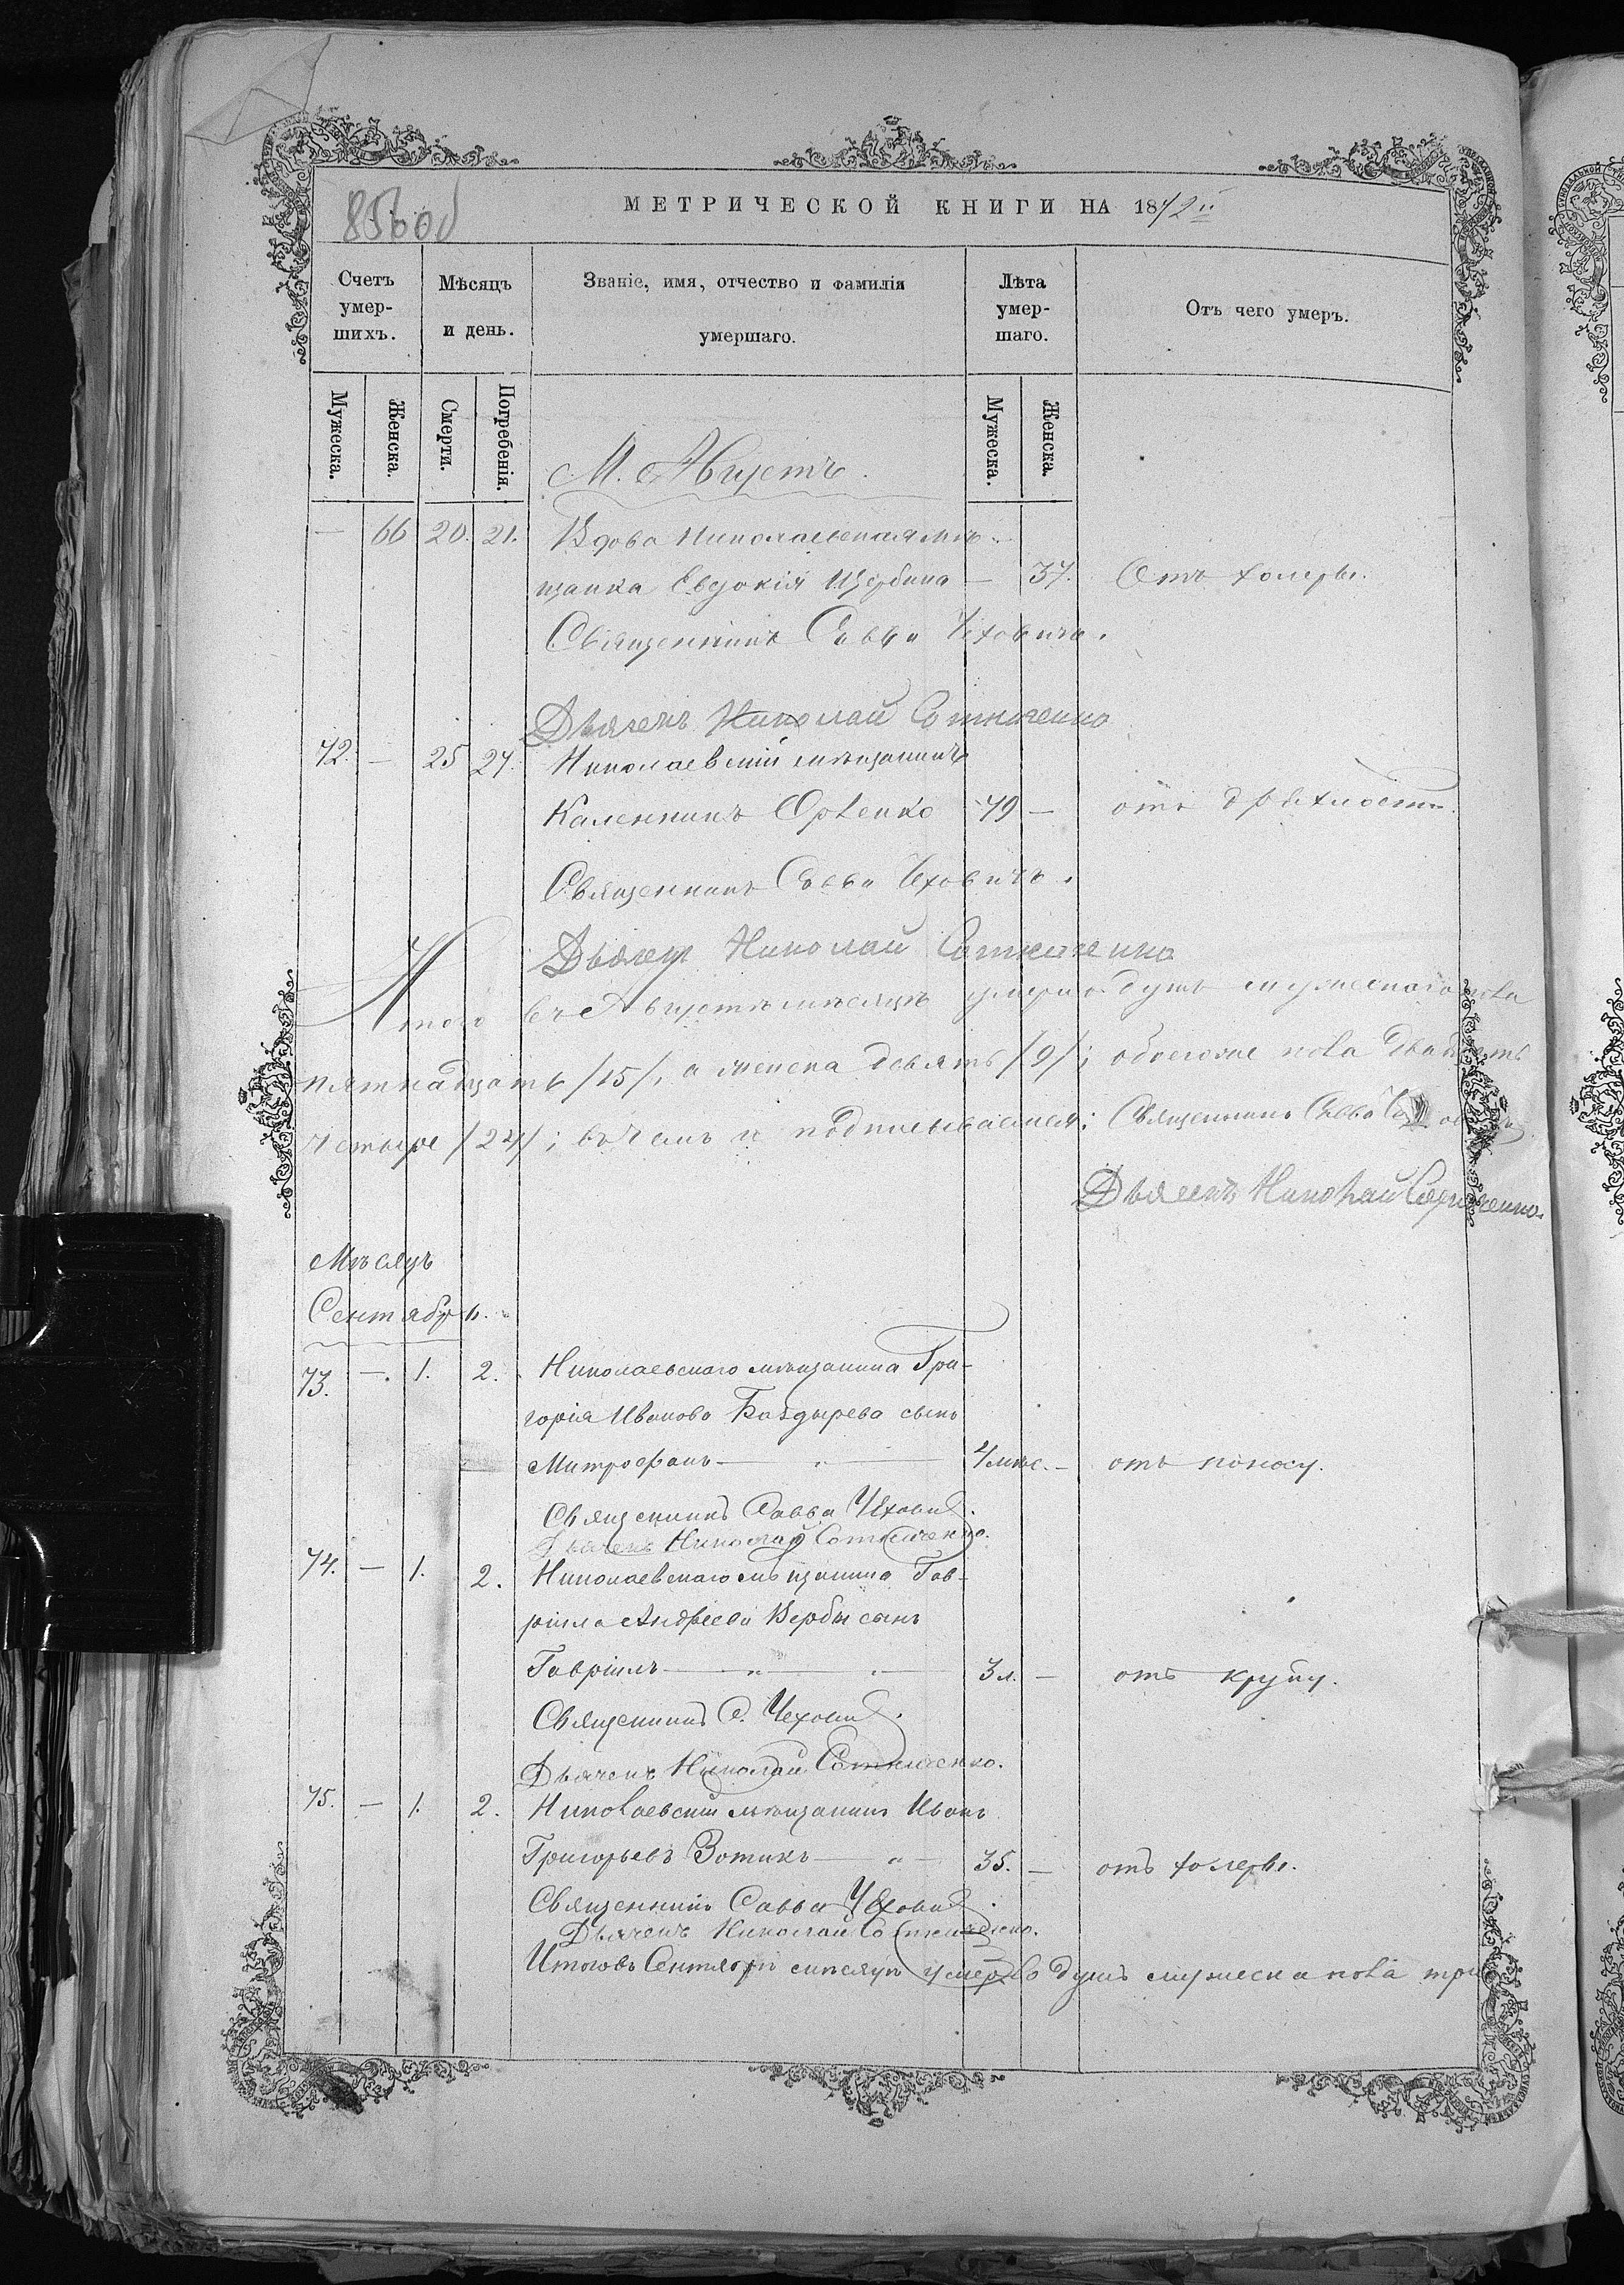 856об
МЕТРИЧЕСКОЙ КНИГИ НА 1872
Счетъ умер-шихъ.
Мѣсяцъ и день.
Званіе, имя, отчество и фамилія умершаго.
Лѣта умер-шаго.
Отъ чего умеръ.
Мужеска.
Женска.
Смерти.
Погребенія.
Мужеска.
Женска.
М. Августъ.
— 66 20. 21. Вдова Николаевская мѣ-
щанка Евдокія Щербина — 37. Отъ холеры.
Священникъ Савва Чеховичъ.
Дьячекъ Николай Сотниченко
72. — 25 27. Николаевскій мѣщанинъ
Каленникъ 79 — отъ дряхлости.
Священникъ Савва Чеховичъ.
Дьячекъ Николай Сотниченко
Итого въ Августѣ мѣсяцѣ умерло душъ мужескаго пола
пятнадцать /15/, а женска девять /9/; обоегоже пола двадцать
четыре /24/; въ чемъ и подписываемся: Священникъ Савва
Дьячекъ Николай Сотниченко.
Мѣсяцъ
Сентябрь.
73. —. 1. 2. Николаевскаго мѣщанина Гри-
горія Иванова Баздырева сынъ
Митрофанъ — 4 мѣс. — отъ поносу.
Священникъ Савва Чеховичъ.
Дьячекъ Николай Сотниченко.
74. — 1. 2. Николаевскаго мѣщанина Гав-
ріила Андреева Вербы сынъ
Гавріилъ — 3 л. — отъ крупу.
Священникъ С. Чеховичъ.
Дьячекъ Николай Сотниченко.
75. — 1. 2. Николаевскій мѣщанинъ Иванъ
Григорьевъ Зотикъ — 35. — отъ холеры.
Священникъ Савва Чеховичъ.
Дьячекъ Николай Сотниченко.
Итого въ Сентябрѣ мѣсяцѣ умерло душъ мужеска пола три